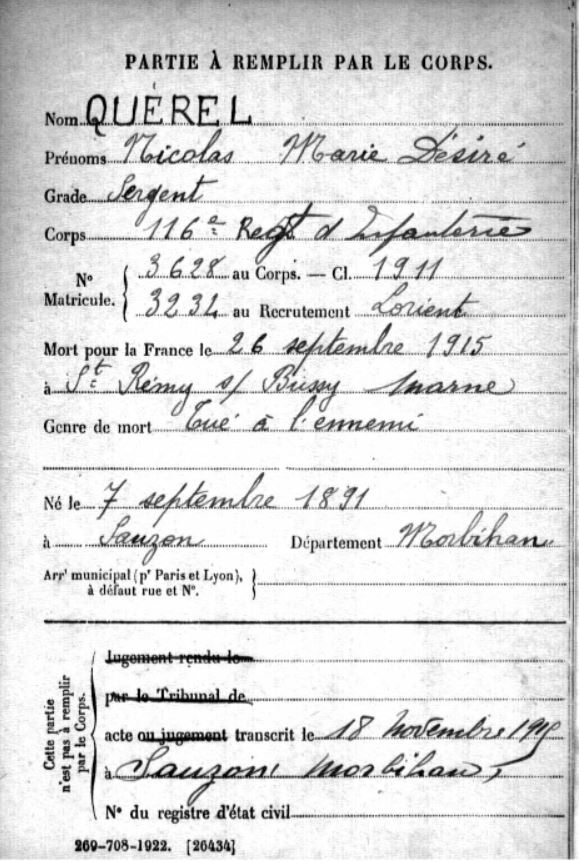 PARTIE À REMPLIR PAR LE CORPS.
Nom QUÉREL
Prénoms Nicolas Marie Désiré
Grade Sergent
Corps 116e Regt d'Infanterie
N° Matricule. { 3628 au Corps. — Cl. 1911
3234 au Recrutement Lorient
Mort pour la France le 26 septembre 1915
à St Rémy s/ Bussy Marne
Genre de mort Tué à l'ennemi
Né le 7 septembre 1891
à Sauzon Département Morbihan
Arrt municipal (pr Paris et Lyon),
à défaut rue et N°. }
Cette partie n'est pas à remplir par le Corps. {
Jugement rendu le
par le Tribunal de
acte ou jugement transcrit le 18 Novembre 1915
à Sauzon Morbihan
N° du registre d'état civil
269-708-1922. [26434]